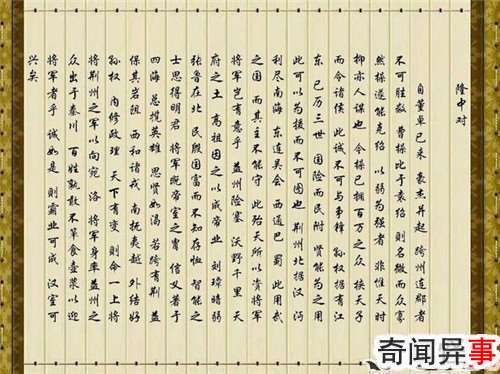 隆中对
自董卓已来 豪杰并起 跨州连郡者
不可胜数 曹操比于袁绍 则名微而众寡
然操遂能克绍 以弱为强者 非惟天时
抑亦人谋也 今操已拥百万之众 挟天子
而令诸侯 此诚不可与争锋 孙权据有江
东 已历三世 国险而民附 贤能为之用
此可以为援而不可图也 荆州北据汉 沔
利尽南海 东连吴会 西通巴蜀 此用武
之国 而其主不能守 此殆天所以资将军
将军岂有意乎 益州险塞 沃野千里 天
府之土 高祖因之以成帝业 刘璋暗弱
张鲁在北 民殷国富而不知存恤 智能之
士思得明君 将军既帝室之胄 信义著于
四海 总揽英雄 思贤如渴 若跨有荆 益
保其岩阻 西和诸戎 南抚夷越 外结好
孙权 内修政理 天下有变 则命一上将
将荆州之军以向宛 洛 将军身率益州之
众出于秦川 百姓孰敢不箪食壶浆以迎
将军者乎 诚如是 则霸业可成 汉室可
兴矣
奇闻异事